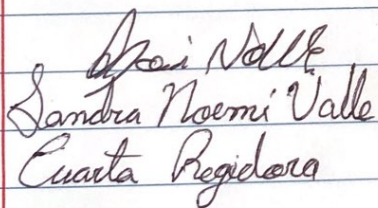 Sandra Noemi Valle
Cuarta Regidora